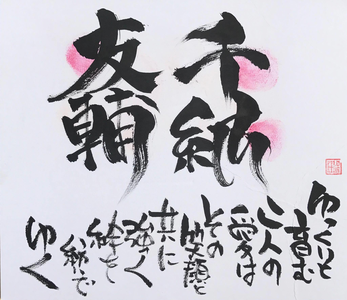 千
友輔
ゆっくりと
育む
二人の
愛は
その
笑顔と
共に
強く
絆を
紡いで
ゆく